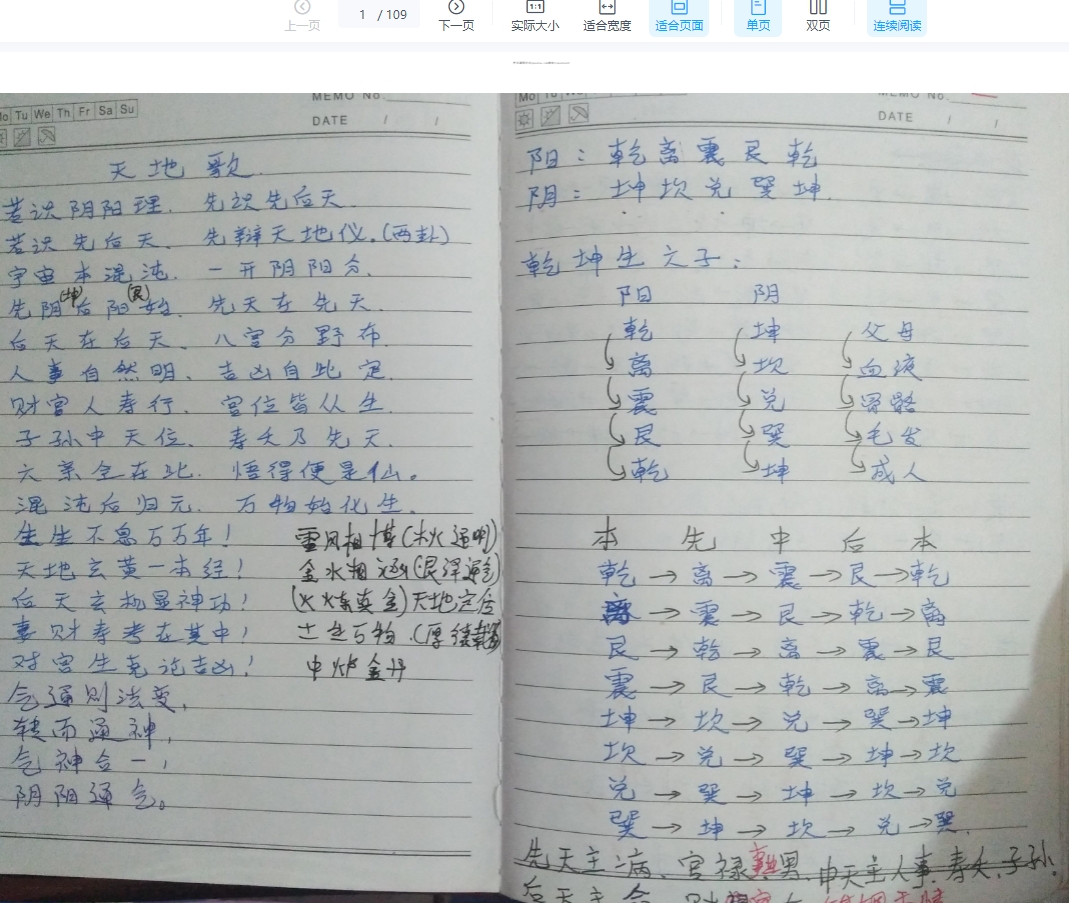 上一页
1 / 109
下一页
实际大小
适合宽度
适合页面
单页
双页
连续阅读
MEMO No.
Mo Tu We Th Fr Sa Su
DATE / /
天地歌
若识阴阳理. 先识先后天.
若识先后天. 先辩天地仪.(两卦)
宇宙本混沌. 一开阴阳分.
先阴(坤)后阳(艮)始. 先天在先天.
后天在后天. 八宫分野布.
人事自然明. 吉凶自此定.
财官人寿行. 宫位皆从生.
子孙中天位. 寿夭乃先天.
六亲全在此. 悟得便是仙。
混沌后归元. 万物始化生.
生生不息万万年!
雷风相博(木火通明)
天地玄黄一本经!
金水相涵
后天玄机显神功!
(火炼真金)天地定位
事财寿考在其中!
土生万物.(厚
对宫生克论吉凶!
中炉金丹
气通则法变,
转而通神,
气神合一,
阴阳通气。
Mo Tu We
MEMO No.
DATE / /
阳: 乾离震艮乾
阴: 坤坎兑巽坤.
乾坤生六子:
阳 阴
乾 坤 父母
离 坎 血液
震 兑 骨骼
艮 巽 毛发
乾 坤 成人
本 先 中 后 本
乾→离→震→艮→乾
离→震→艮→乾→离
艮→乾→离→震→艮
震→艮→乾→离→震
坤→坎→兑→巽→坤
坎→兑→巽→坤→坎
兑→巽→坤→坎→兑
巽→坤→坎→兑→巽.
先天主病、官禄 男. 中天主人事.寿夭.子孙.
后天主